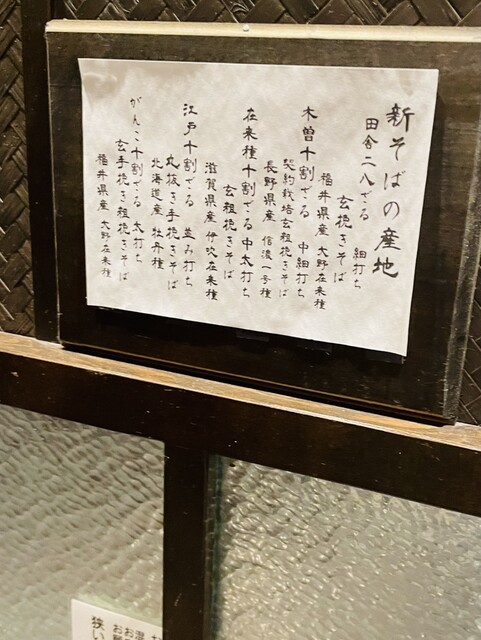 新そばの産地
田舎二八ざる 細打ち
玄挽きそば
福井県産 大野在来種
木曽十割ざる 中細打ち
契約栽培玄粗挽きそば
長野県産 信濃一号種
在来種十割ざる 中太打ち
玄粗挽きそば
滋賀県産 伊吹在来種
江戸十割ざる 並み打ち
丸抜き手挽きそば
北海道産 牡丹種
がんこ十割ざる 太打ち
玄手挽き粗挽きそば
福井県産 大野在来種
狭い